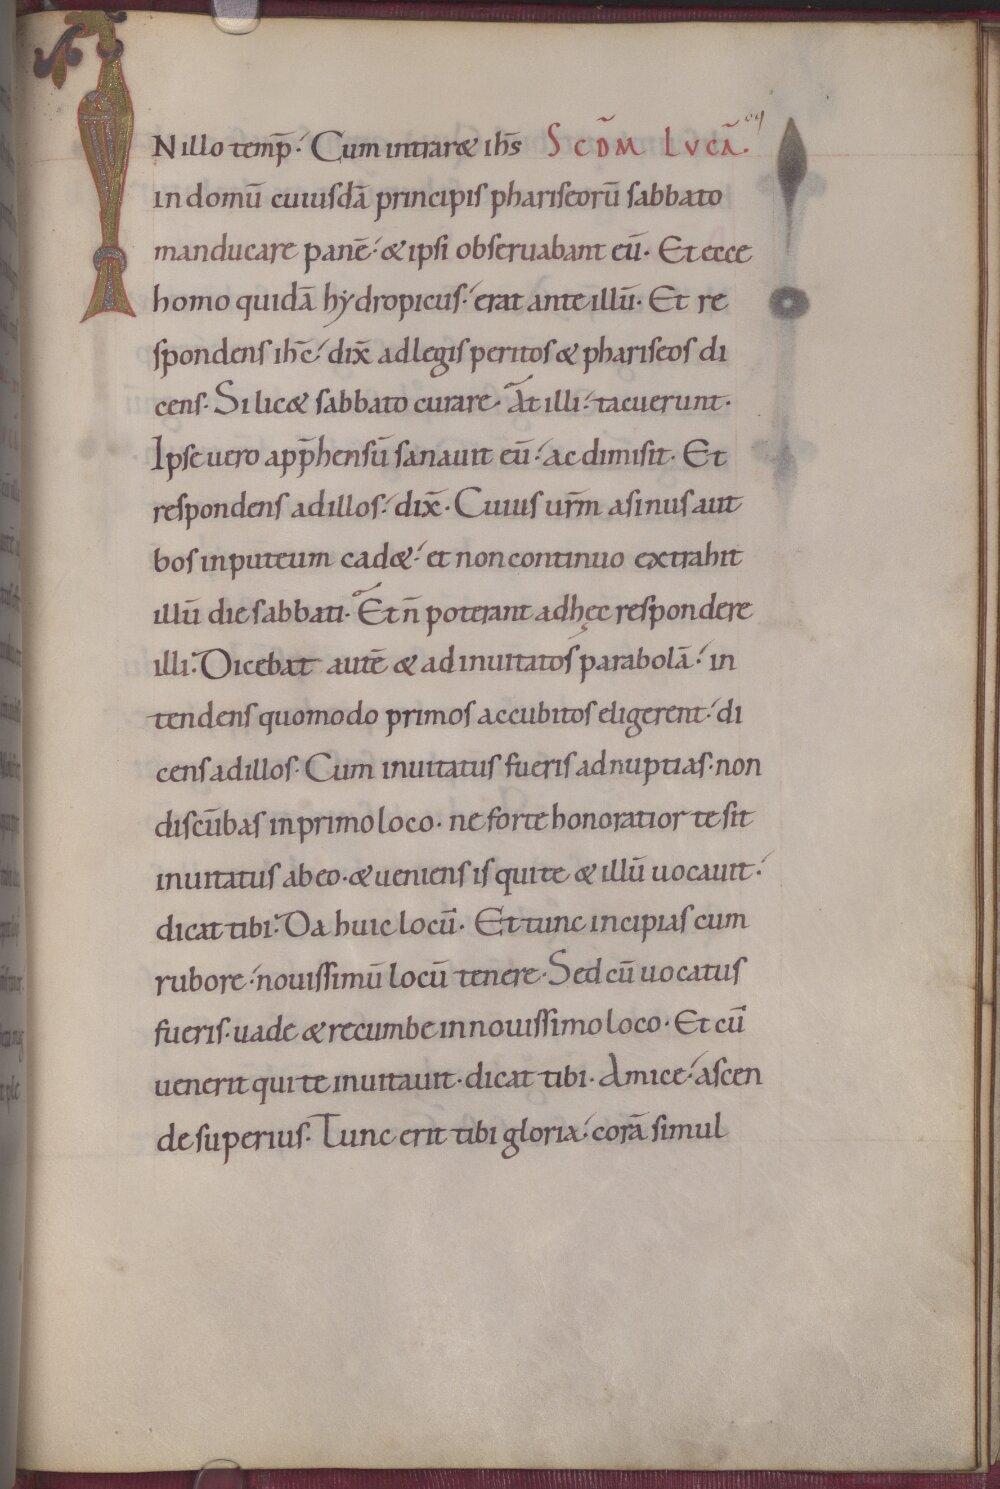 IN illo temp̄. Cum intraret ih̄s SCD̄M LVCĀ.
in domū cuiusdā principis phariseorū sabbato
manducare panē. & ipsi obseruabant eū. Et ecce
homo quidā hydropicus. erat ante illū. Et re
spondens ih̄c. dix̄ ad legis peritos & phariseos di
cens. Si lic& sabbato curare. At illi. tacuerunt.
Ipse uero app̄hensū sanauit eū. ac dimisit. Et
respondens ad illos. dix̄. Cuius ur̄m asinus aut
bos in puteum cad&. et non continuo extrahit
illū die sabbati. Et n̄ poterant ad hęc respondere
illi. Dicebat autē & ad inuitatos parabolā. in
tendens quomodo primos accubitos eligerent. di
cens ad illos. Cum inuitatus fueris ad nuptias. non
discūbas in primo loco. ne forte honoratior te sit
inuitatus ab eo. & ueniens is qui te & illū uocauit.
dicat tibi. Da huic locū. Et tunc incipias cum
rubore. nouissimū locū tenere. Sed cū uocatus
fueris. uade & recumbe in nouissimo loco. Et cū
uenerit qui te inuitauit. dicat tibi. Amice. ascen
de superius. Tunc erit tibi gloria. corā simul